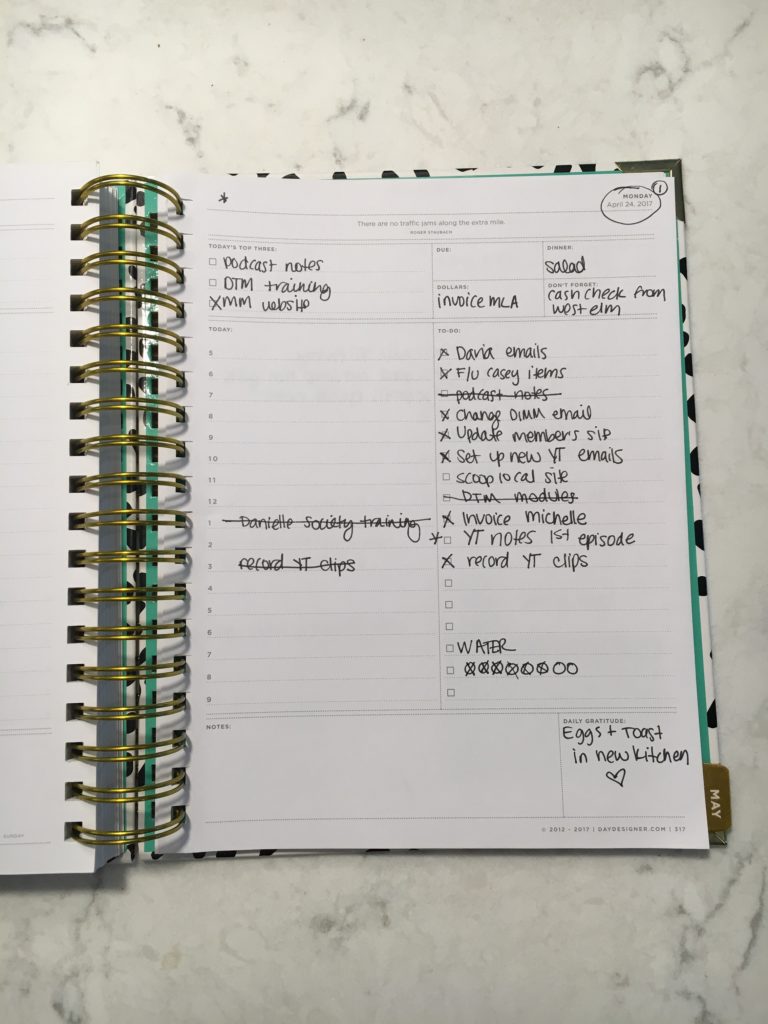 *
1
MONDAY
April 24, 2017
There are no traffic jams along the extra mile.
ROGER STAUBACH
TODAY'S TOP THREE:
podcast notes
DTM training
X MM website
DUE:
DINNER:
salad
DOLLARS:
invoice MLA
DON'T FORGET:
cash check from
west elm
TODAY:
5
6
7
8
9
10
11
12
1 Danielle Society training
2
3 record YT clips
4
5
6
7
8
9
TO-DO:
X Daria emails
X F/U casey items
podcast notes
X Change DIMM email
X Update members sip
X Set up new YT emails
scoop local site
DTM modules
X Invoice michelle
* YT notes 1st episode
X record YT clips
WATER
NOTES:
DAILY GRATITUDE:
Eggs + Toast
in new kitchen
♡
© 2012 - 2017 | DAYDESIGNER.COM | 317
MAY
SUNDAY